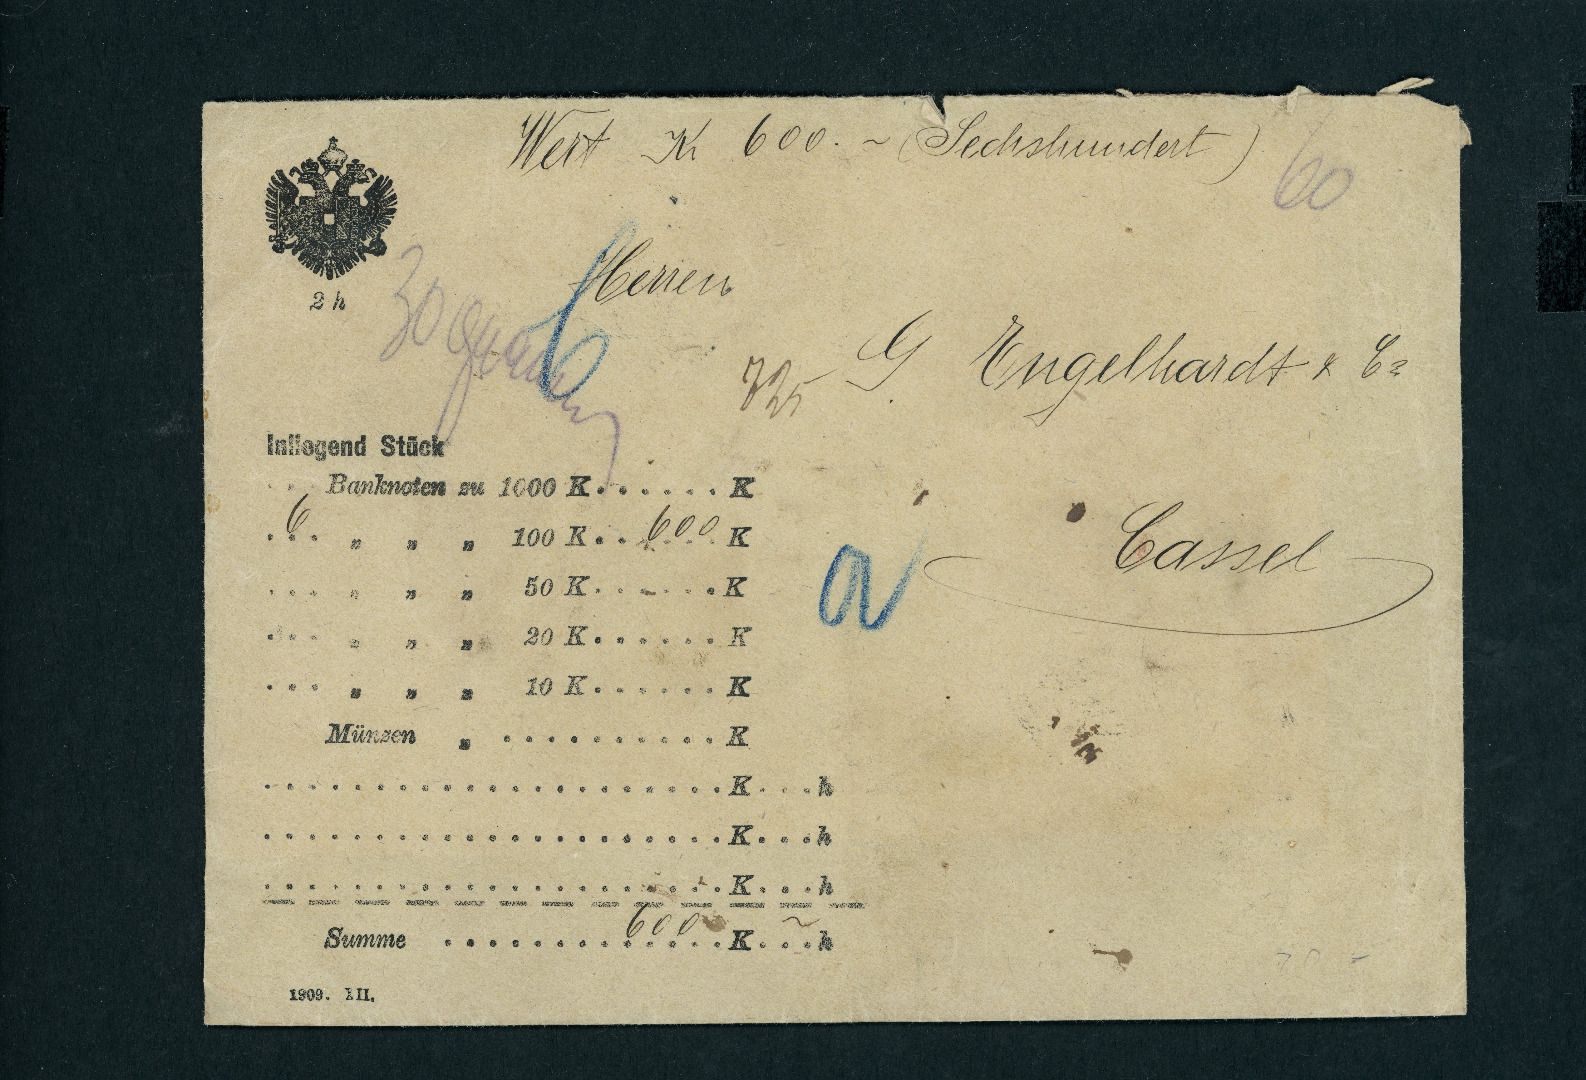 Wert K 600. ~ (Sechshundert)
60
2 h
Herren
G Engelhardt & Co
Inliegend Stück
... Banknoten zu 1000 K....... K
6 " " " 100 K.. 600 K
... " " " 50 K....... K
... " " " 20 K....... K
... " " " 10 K....... K
a
Cassel
Münzen " .......... K
..................... K....h
..................... K....h
..................... K....h
Summe ........ 600 K. ~ h
1909. XII.